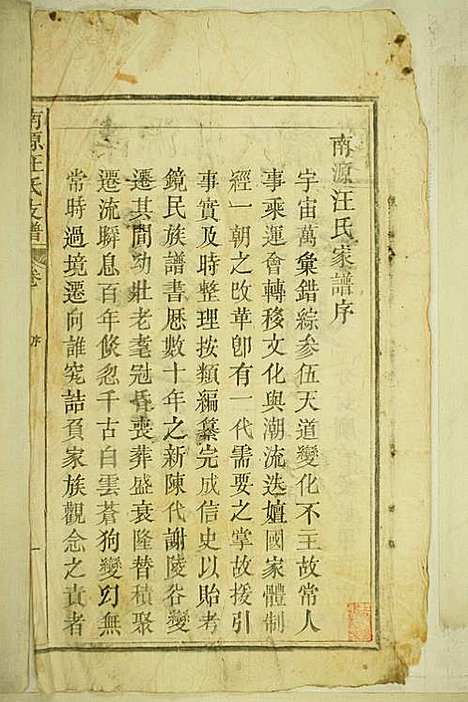 南源汪氏家譜序
宇宙萬彙錯綜参伍天道變化不主故常人
事乘運會轉移文化與潮流迭嬗國家體制
經一朝之改革卽有一代需要之掌故援引
事實及時整理按類編纂完成信史以貽考
鏡民族譜書歷數十年之新陳代謝陵谷變
遷其間幼壯老耄冠昏喪葬盛衰隆替積聚
遷流瞬息百年倏忽千古白雲蒼狗變幻無
常時過境遷向誰究詰負家族觀念之責者
南源汪氏支譜
卷
序
一